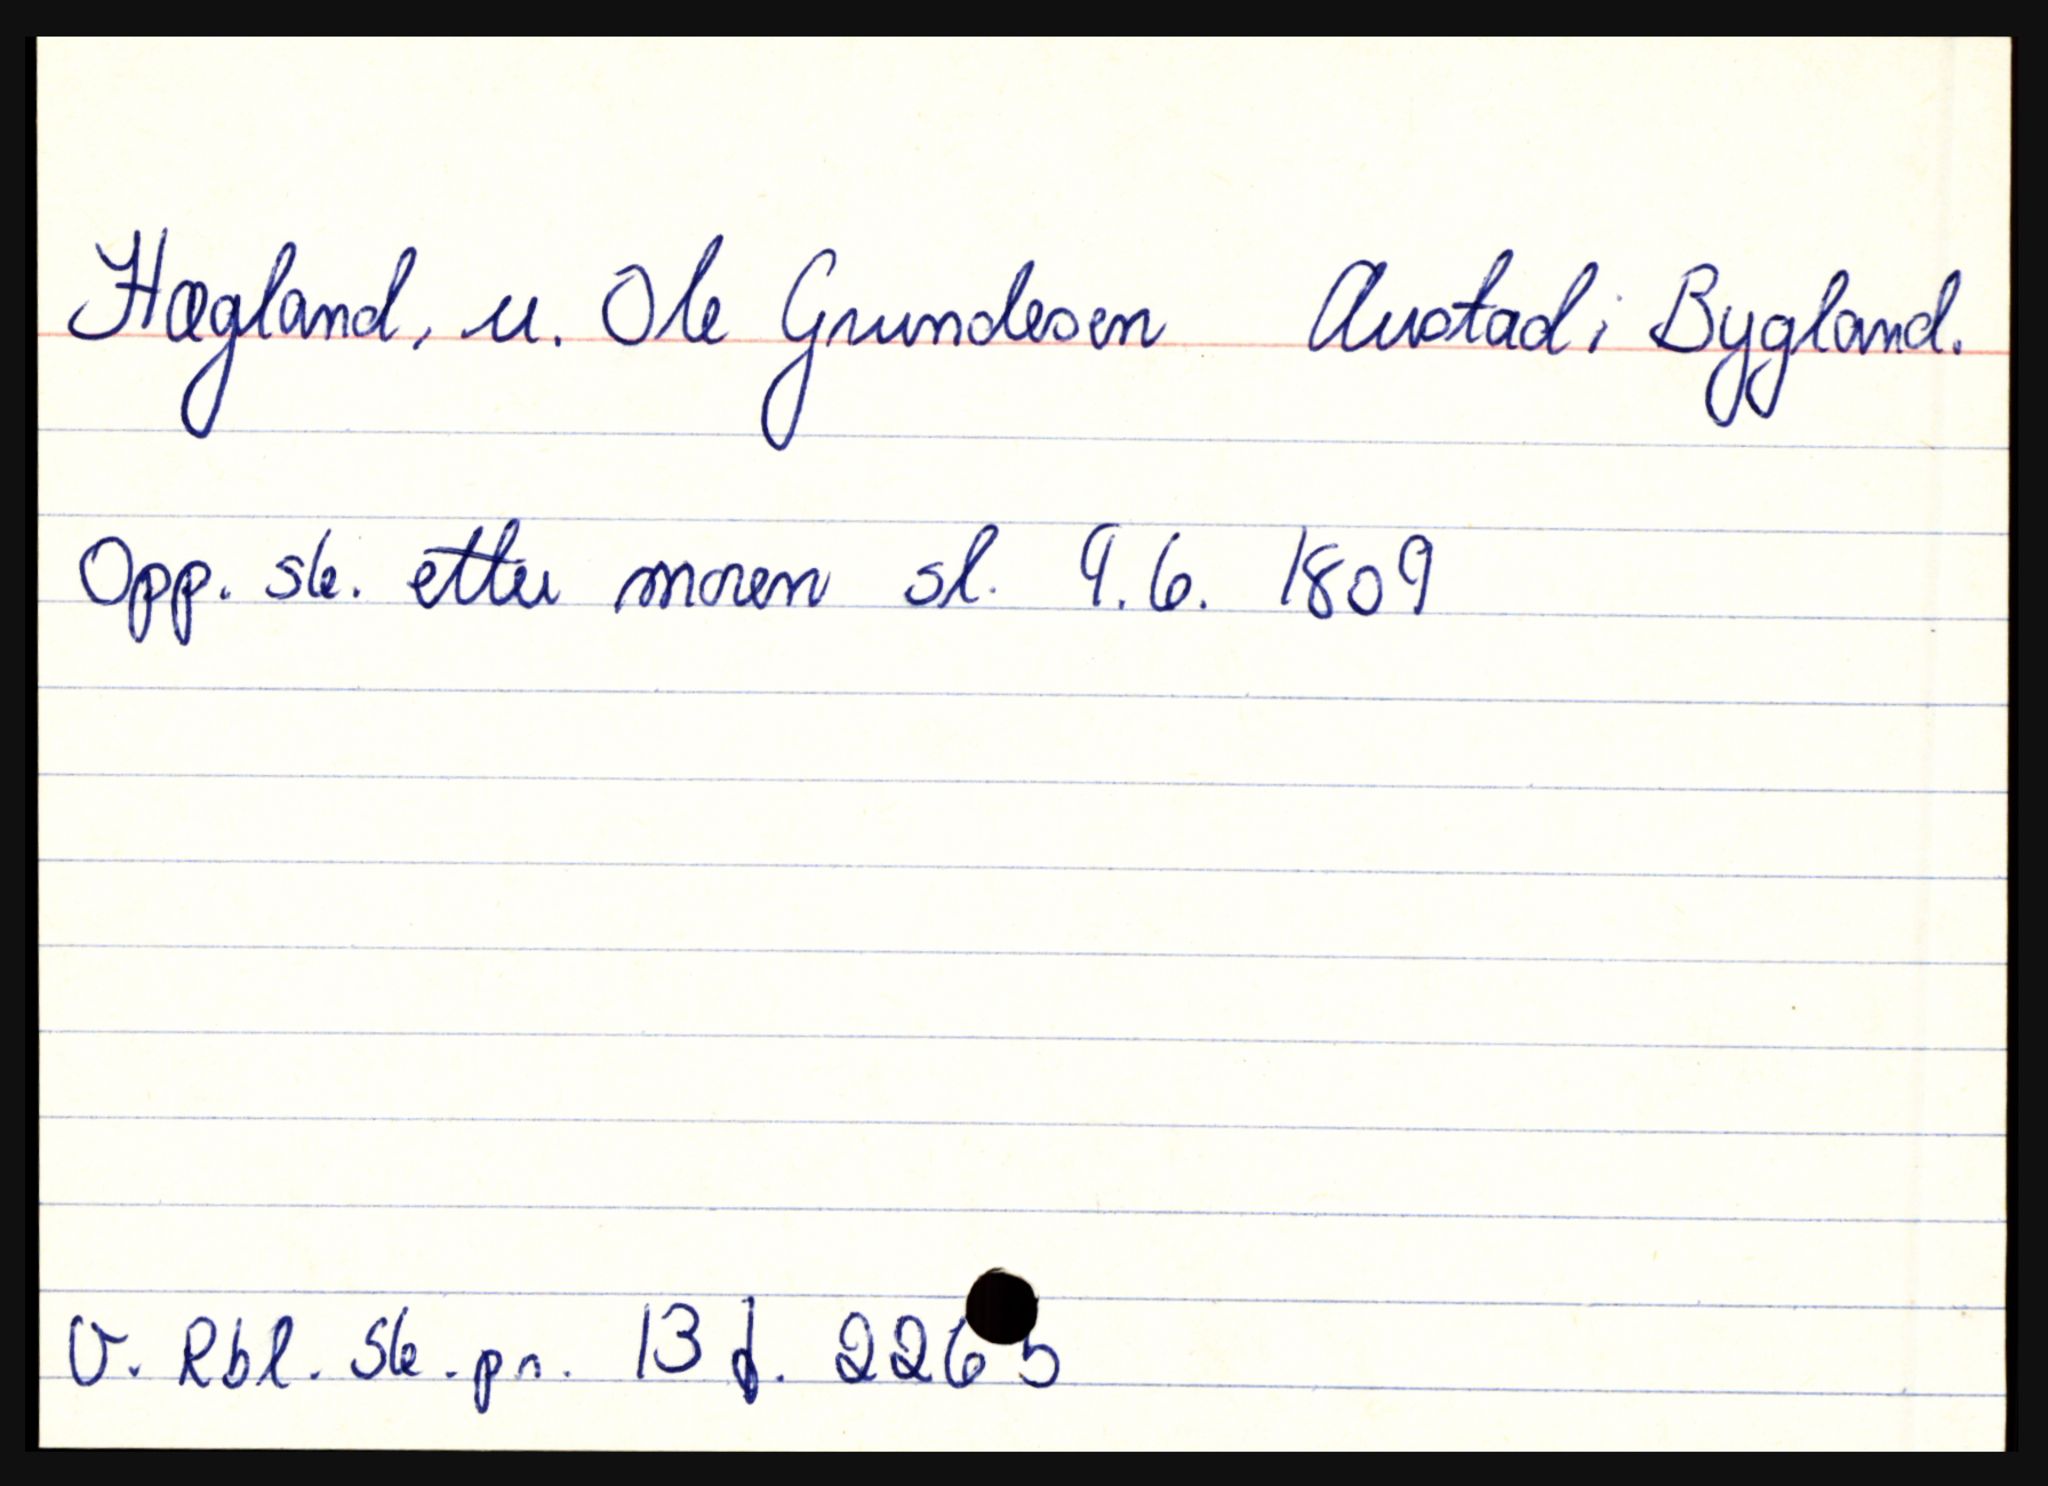 Hægland, u. Ole Grundesen Austad i Bygland.
Opp. sk. etter moren sl. 9.6. 1809
V. Rbl. Sk. pr. 13 f. 226 b